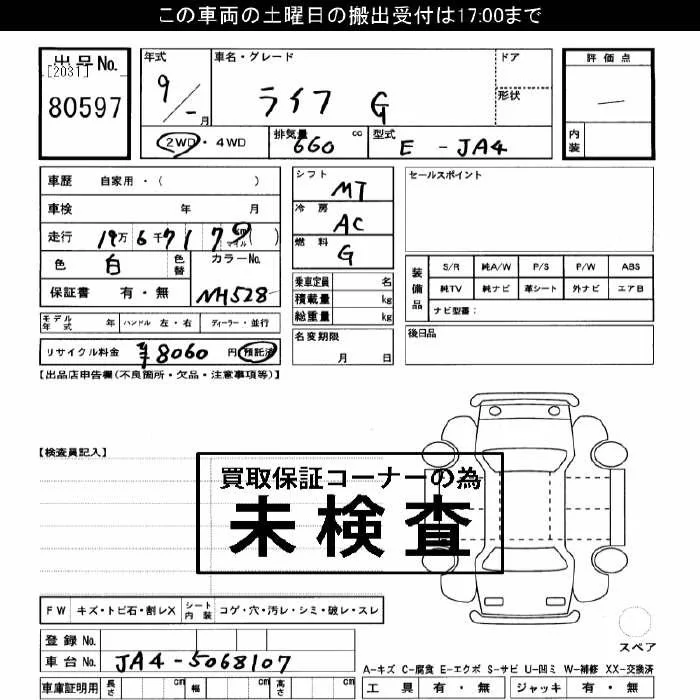 この車両の土曜日の搬出受付は17:00まで
出品No.
[2031]
80597
年式 9/- 月
車名・グレード ライフ G
ドア
形状
2WD・4WD
排気量 660 cc
型式 E - JA4
評価点
—
内装
車歴 自家用・( )
車検 年 月
走行 19万6千7179 km マイル ( )
色 白 色替 カラーNo. NH528
保証書 有・無
モデル年式 年 ハンドル 左・右 ディーラー・並行
リサイクル料金 ¥8060 円 預託済
シフト MT
冷房 AC
燃料 G
乗車定員 名
積載量 kg
総重量 kg
名変期限
月 日
セールスポイント
装備品 S/R 純A/W P/S P/W ABS
純TV 純ナビ 革シート 外ナビ エアB
ナビ型番:
後日品
【出品店申告欄(不良箇所・欠品・注意事項等)】
【検査員記入】
買取保証コーナーの為
未検査
FW キズ・トビ石・割レX シート内装 コゲ・穴・汚レ・シミ・破レ・スレ
登録No.
車台No. JA4-5068107
車庫証明用 長さ cm 幅 cm 高さ cm
スペア
A-キズ C-腐食 E-エクボ S-サビ U-凹ミ W-補修 XX-交換済
工具 有・無 ジャッキ 有・無